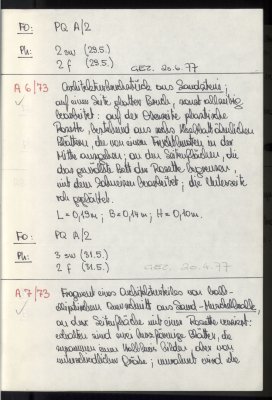 FO: PQ A/2
PH: 2 sw (29.5.)
2 f (29.5.) GEZ. 20.6.77
A 6/73 Architekturbruchstück aus Sandstein;
auf einer Seite glatter Bruch, sonst allseitig
bearbeitet: auf der Oberseite plastische
Rosette, bestehend aus sechs
Blättern, die von einem in der
Mitte ausgehen; an den Seitenflächen, die
das Blatt der Rosette begrenzen,
mit dem bearbeitet; die Unterseite
roh geglättet.
L = 0,19m; B = 0,14m; H = 0,10m.
FO: PQ A/2
PH: 3 sw (31.5.)
2 f (31.5.) GEZ. 20.4.77
A 7/73 Fragment eines Architekturteiles von
Querschnitt aus Sand-Muschelkalk,
an der Seitenfläche mit einer Rosette verziert:
erhalten sind zwei Blätter, die
zusammen einen bilden, aber von
unterschiedlicher Größe; umrahmt wird die